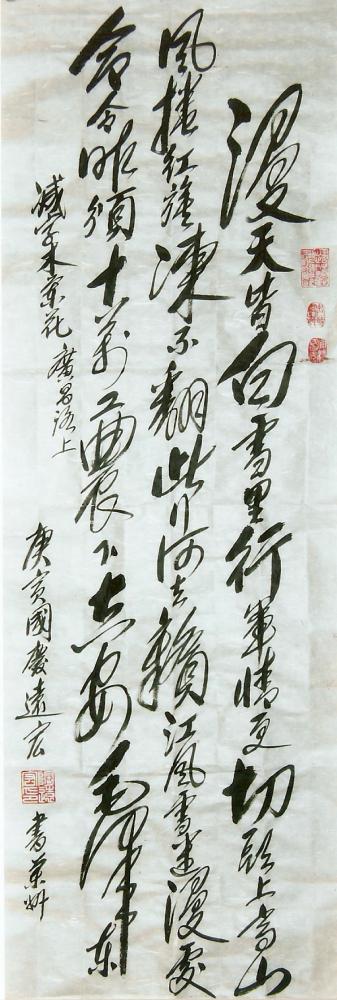 漫天皆白雪里行軍情更切頭上高山
風捲紅旗凍不翻此行何去贛江風雪迷漫處
命令昨頒十萬工農下吉安毛澤東
減字木蘭花 廣昌路上
庚寅國慶遠宏書蘭州